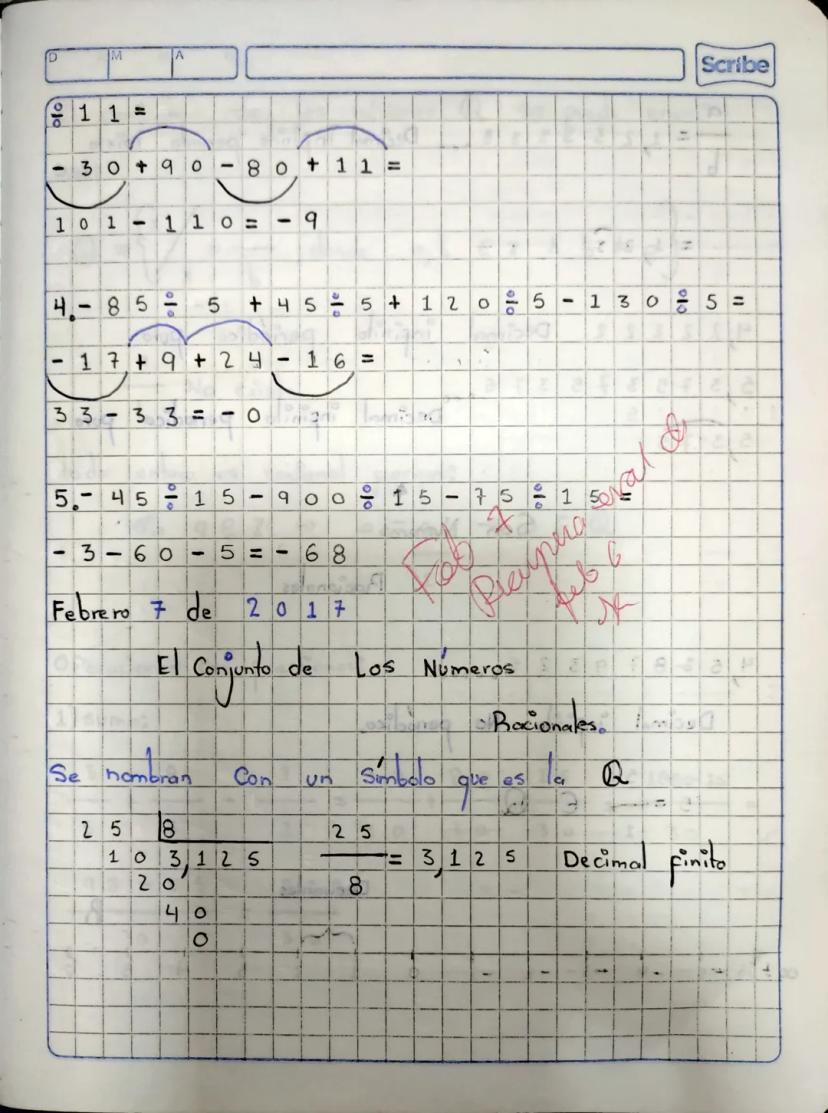 D M A
Scribe
÷ 11 =
- 30 + 90 - 80 + 11 =
101 - 110 = - 9
4.- 85 ÷ 5 + 45 ÷ 5 + 120 ÷ 5 - 130 ÷ 5 =
- 17 + 9 + 24 - 16 =
33 - 33 = - 0
5.- 45 ÷ 15 - 900 ÷ 15 - 75 ÷ 15 =
- 3 - 60 - 5 = - 68
Feb 7
feb 6
Febrero 7 de 2017
El Conjunto de Los Números
Racionales.
Se nombran Con un símbolo que es la Q
25 8 25
103,125 = 3,125 Decimal finito
20 8
40
0